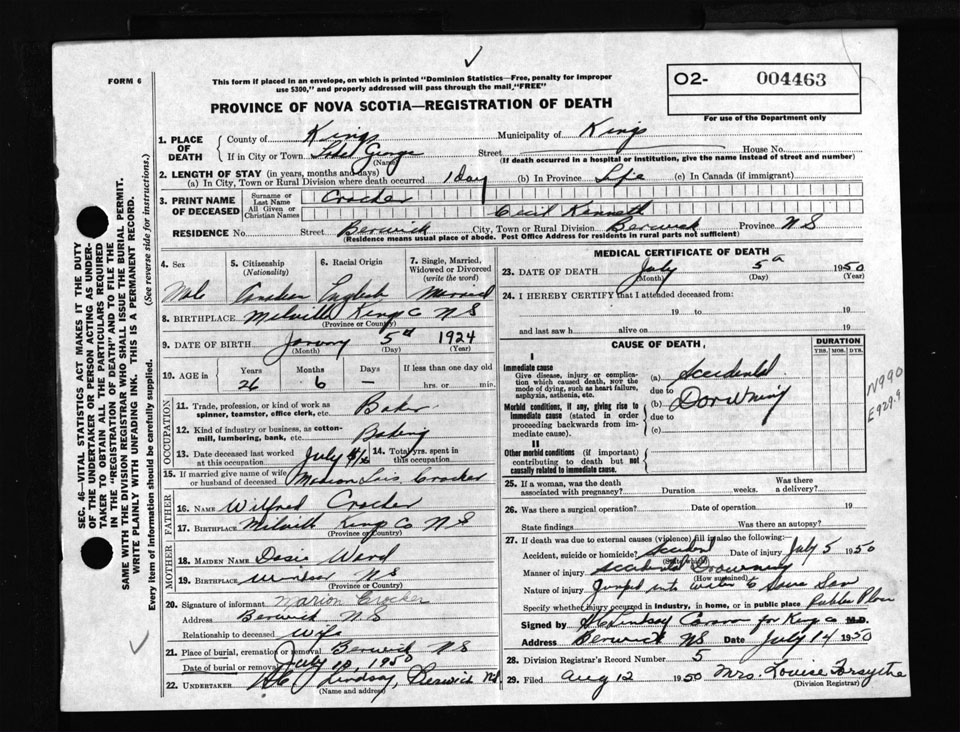 FORM 6
This form if placed in an envelope, on which is printed "Dominion Statistics—Free, penalty for improper
use $300," and properly addressed will pass through the mail, "FREE"
O2- 004463
For use of the Department only
PROVINCE OF NOVA SCOTIA—REGISTRATION OF DEATH
1. PLACE OF DEATH
County of Kings Municipality of Kings
If in City or Town Lake George Street House No.
(Name) (If death occurred in a hospital or institution, give the name instead of street and number)
2. LENGTH OF STAY (in years, months and days)
(a) In City, Town or Rural Division where death occurred 1 day (b) In Province Life (c) In Canada (if immigrant)
3. PRINT NAME OF DECEASED
Surname or Last Name Crocker
All Given or Christian Names Cecil Kenneth
RESIDENCE No. Street Berwick City, Town or Rural Division Berwick Province N S
(Residence means usual place of abode. Post Office Address for residents in rural parts not sufficient)
4. Sex
Male
5. Citizenship (Nationality)
Canadian
6. Racial Origin
English
7. Single, Married, Widowed or Divorced (write the word)
Married
8. BIRTHPLACE Melville Kings Co N S
(Province or Country)
9. DATE OF BIRTH 5 1924
(Month) (Day) (Year)
10. AGE in Years Months Days If less than one day old
26 6 – hrs. or min.
OCCUPATION
11. Trade, profession, or kind of work as spinner, teamster, office clerk, etc. Baker
12. Kind of industry or business, as cotton-mill, lumbering, bank, etc. Baking
13. Date deceased last worked at this occupation July
14. Total yrs. spent in this occupation
15. If married give name of wife or husband of deceased Crocker
FATHER
16. NAME Wilfred Crocker
17. BIRTHPLACE Melville Kings Co N S
(Province or Country)
MOTHER
18. MAIDEN NAME Ward
19. BIRTHPLACE Windsor N S
(Province or Country)
20. Signature of informant Marion Crocker
Address Berwick N.S
Relationship to deceased Wife
21. Place of burial, cremation or removal Berwick N S
Date of burial or removal July 1950
22. UNDERTAKER Lindsay, Berwick NS
(Name and address)
MEDICAL CERTIFICATE OF DEATH
23. DATE OF DEATH July 5 1950
(Month) (Day) (Year)
24. I HEREBY CERTIFY that I attended deceased from:
19 to 19
and last saw h alive on 19
CAUSE OF DEATH, DURATION
YRS. MOS. DYS.
I
Immediate cause
Give disease, injury or complication which caused death, NOT the mode of dying, such as heart failure, asphyxia, asthenia, etc.
(a) Accidental
due to
Morbid conditions, if any, giving rise to immediate cause (stated in order proceeding backwards from immediate cause).
(b) Dorwning
due to
(c)
II
Other morbid conditions (if important) contributing to death but not causally related to immediate cause.
N990
E929.9
25. If a woman, was the death associated with pregnancy? Duration weeks. Was there a delivery?
26. Was there a surgical operation? Date of operation 19
State findings Was there an autopsy?
27. If death was due to external causes (violence) fill in also the following:
Accident, suicide or homicide? Accident Date of injury July 5 1950
(State which)
Manner of injury Accidental Drowning
(How sustained)
Nature of injury Jumped into water to Save Son
Specify whether injury occurred in industry, in home, or in public place Public Place
Signed by Lindsay for Kings Co M.D.
Address Berwick NS Date July 14 1950
28. Division Registrar's Record Number 5
29. Filed Aug 12 1950 Mrs. Louise Forsythe
(Division Registrar)
SEC. 46—VITAL STATISTICS ACT MAKES IT THE DUTY
OF THE UNDERTAKER OR PERSON ACTING AS UNDER-
TAKER TO OBTAIN ALL THE PARTICULARS REQUIRED
IN THE "REGISTRATION OF DEATH" AND TO FILE THE
SAME WITH THE DIVISION REGISTRAR WHO SHALL ISSUE THE BURIAL PERMIT.
WRITE PLAINLY WITH UNFADING INK. THIS IS A PERMANENT RECORD.
Every item of information should be carefully supplied. (See reverse side for instructions.)